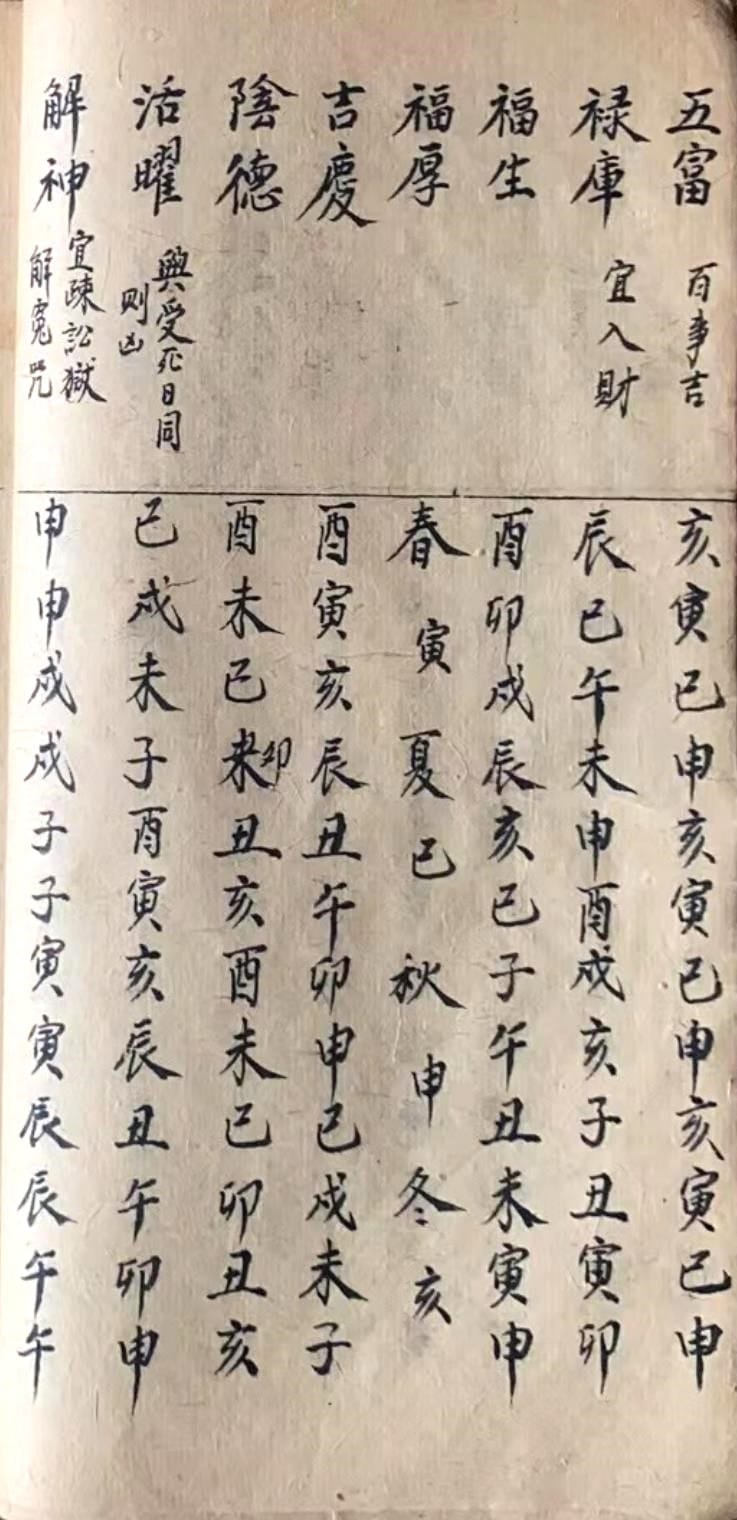 五富 百事吉 亥寅巳申亥寅巳申亥寅巳申
禄庫 宜入財 辰巳午未申酉戌亥子丑寅卯
福生 酉卯戌辰亥巳子午丑未寅申
福厚 春寅夏巳秋申冬亥
吉慶 酉寅亥辰丑午卯申巳戌未子
陰德 酉未巳未卯丑亥酉未巳卯丑亥
活曜 與受死日同则凶 巳戌未子酉寅亥辰丑午卯申
解神 宜疎訟獄解寃咒 申申戌戌子子寅寅辰辰午午